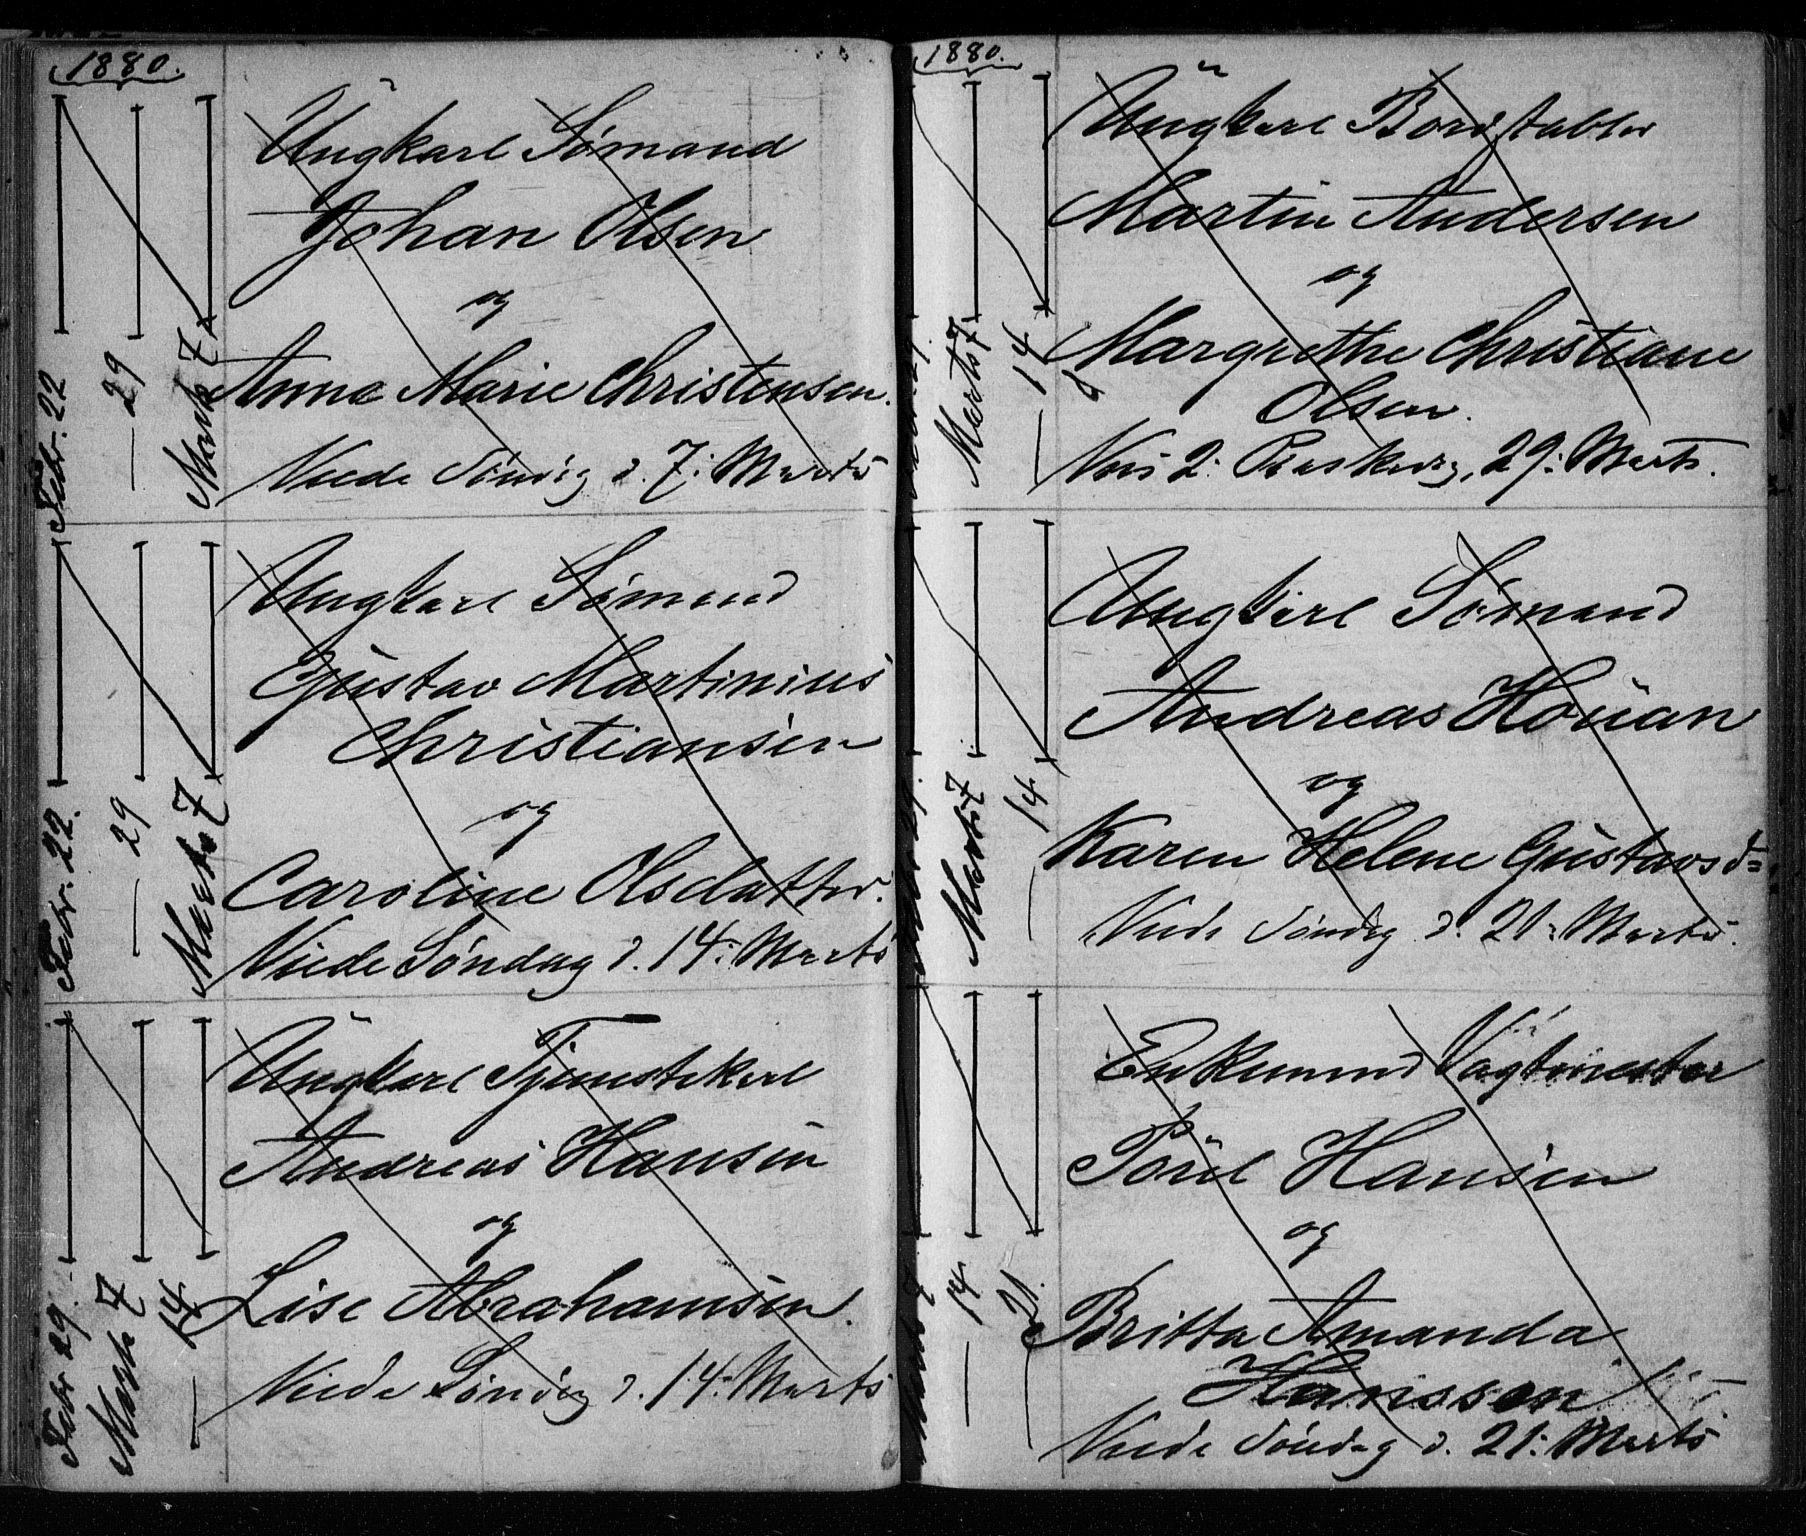 1880.
Febr. 22
— 29
Marts 7
Ungkarl Sømand
Johan Olsen
og
Anne Marie Christensen.
Viede Søndag d. 7: Marts
Febr. 22.
— 29
Marts 7
Ungkarl Sømand
Gustav Martinius
Christiansen
og
Caroline Olsdatter.
Viede Søndag d. 14: Marts
Febr 29.
Marts 7
— 14
Ungkarl Tjenestekarl
Andreas Hansen
og
Lise Abrahamsen.
Viede Søndag d. 14: Marts
1880.
Marts 7
— 14
Ungkarl
Martin Andersen
og
Margrethe Christiane
Olsen.
Viis 2: Paaskedag, 29: Marts.
Marts 7
— 14
Ungkarl Sømand
Andreas Houan
og
Karen Helene Gustavsd=
Viede Søndag d. 21: Marts.
— 14
— 21.
Enkemand Vagtmester
Poul Hansen
og
Britta Amanda
Hanssen
Viede Søndag d. 21: Marts